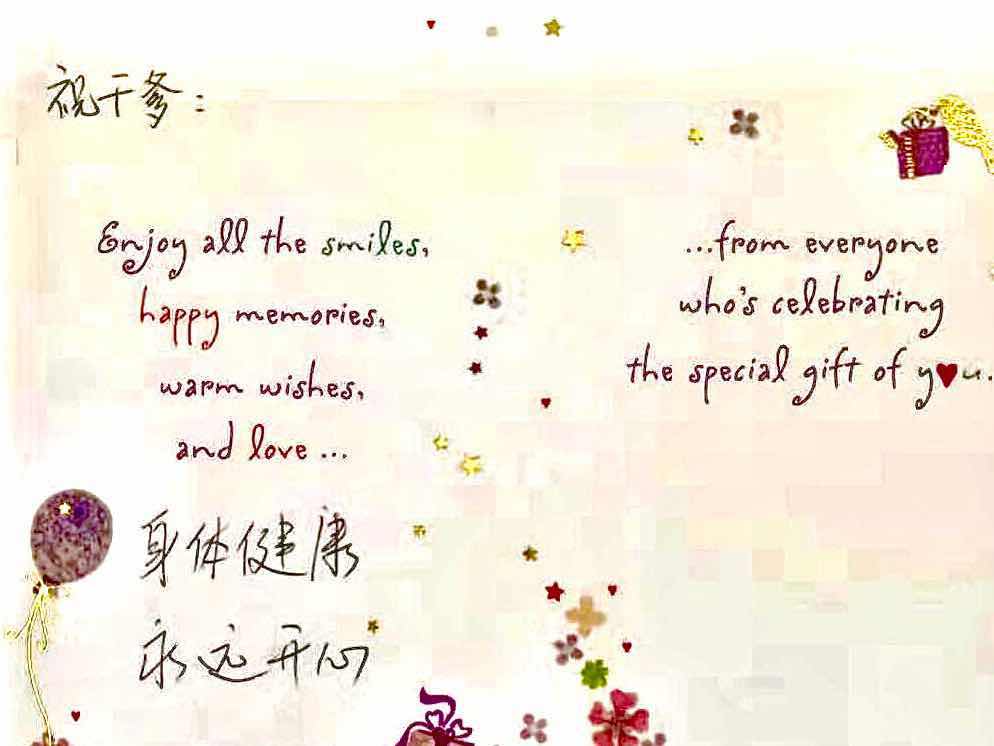 祝干爹：
Enjoy all the smiles,
happy memories,
warm wishes,
and love ...
...from everyone
who's celebrating
the special gift of y♥u.
身体健康
永远开心